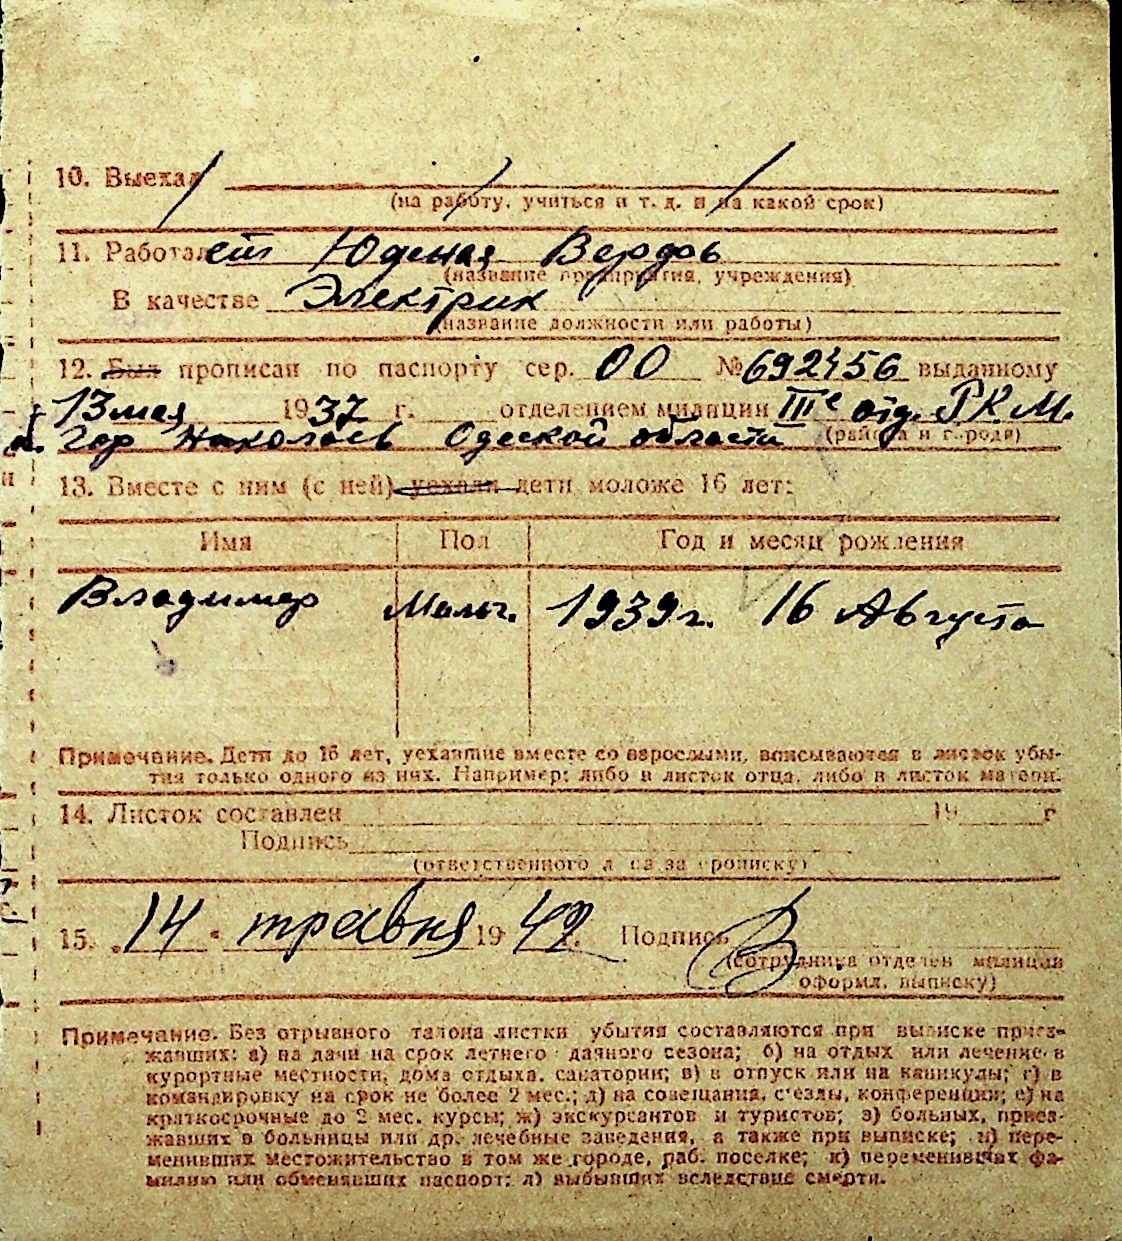 10. Выехал
(на работу, учиться и т. д. и на какой срок)
11. Работает Юденая Верфь
(название предприятия, учреждения)
В качестве Электрик
(название должности или работы)
12. Был прописан по паспорту сер. ОО № 692456 выданному
13 мая 1937 г. отделением милиции IIIе отд. Р.К.М.
гор Николаев Одеской области (района и города)
13. Вместе с ним (с ней) уехали дети моложе 16 лет:
Имя Пол Год и месяц рождения
Владимир Мальч. 1939 г. 16 Августа
Примечание. Дети до 16 лет, уехавшие вместе со взрослыми, вписываются в листок убы-
тия только одного из них. Например: либо в листок отца, либо в листок матери.
14. Листок составлен 19 г
Подпись
(ответственного лица за прописку)
15. „14" травня 1942 г. Подпись
(сотрудника отделен милиции
оформл. выписку)
Примечание. Без отрывного талона листки убытия составляются при выписке приез-
жавших: а) на дачи на срок летнего дачного сезона; б) на отдых или лечение в
курортные местности, дома отдыха, санатории; в) в отпуск или на каникулы; г) в
командировку на срок не более 2 мес.; д) на совещания, с'езды, конференции; е) на
краткосрочные до 2 мес. курсы; ж) экскурсантов и туристов; з) больных, приез-
жавших в больницы или др. лечебные заведения, а также при выписке; и) пере-
менивших местожительство в том же городе, раб. поселке; к) переменивших фа-
милию или обменявших паспорт; л) выбывших вследствие смерти.